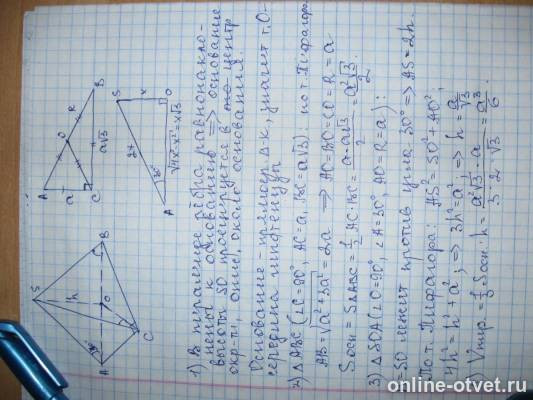 1) В пирамиде рёбра равнонакло-
нены к основанию ⇒ основание
высоты SO проецируется в центр
окр-ти, опис. около основания.
Основание - прямоуг. Δ-к, значит т. O -
середина гипотенузы
2) Δ ABC (∠C=90°, AC=a, BC=a√3): по т. Пифагора
AB=√a²+3a²=2a ⇒ AO=BO=CO=R=a
Sосн = SΔABC = 1/2 AC·BC = a·a√3/2 = a²√3/2
3) Δ SOA (∠O=90°, ∠A=30°, AO=R=a):
SO лежит против угла 30° ⇒ AS=2h.
По т. Пифагора: AS²=SO²+AO²,
4h²=h²+a²; ⇒ 3h²=a²; ⇒ h=a/√3
Vпир=1/3 Sосн·h= a²√3·a/3·2·√3 = a³/6
S
h
O
A
B
C
A
O
R
B
a
a√3
C
S
x
O
2x
30°
√4x²-x²=x√3
A
online-otvet.ru